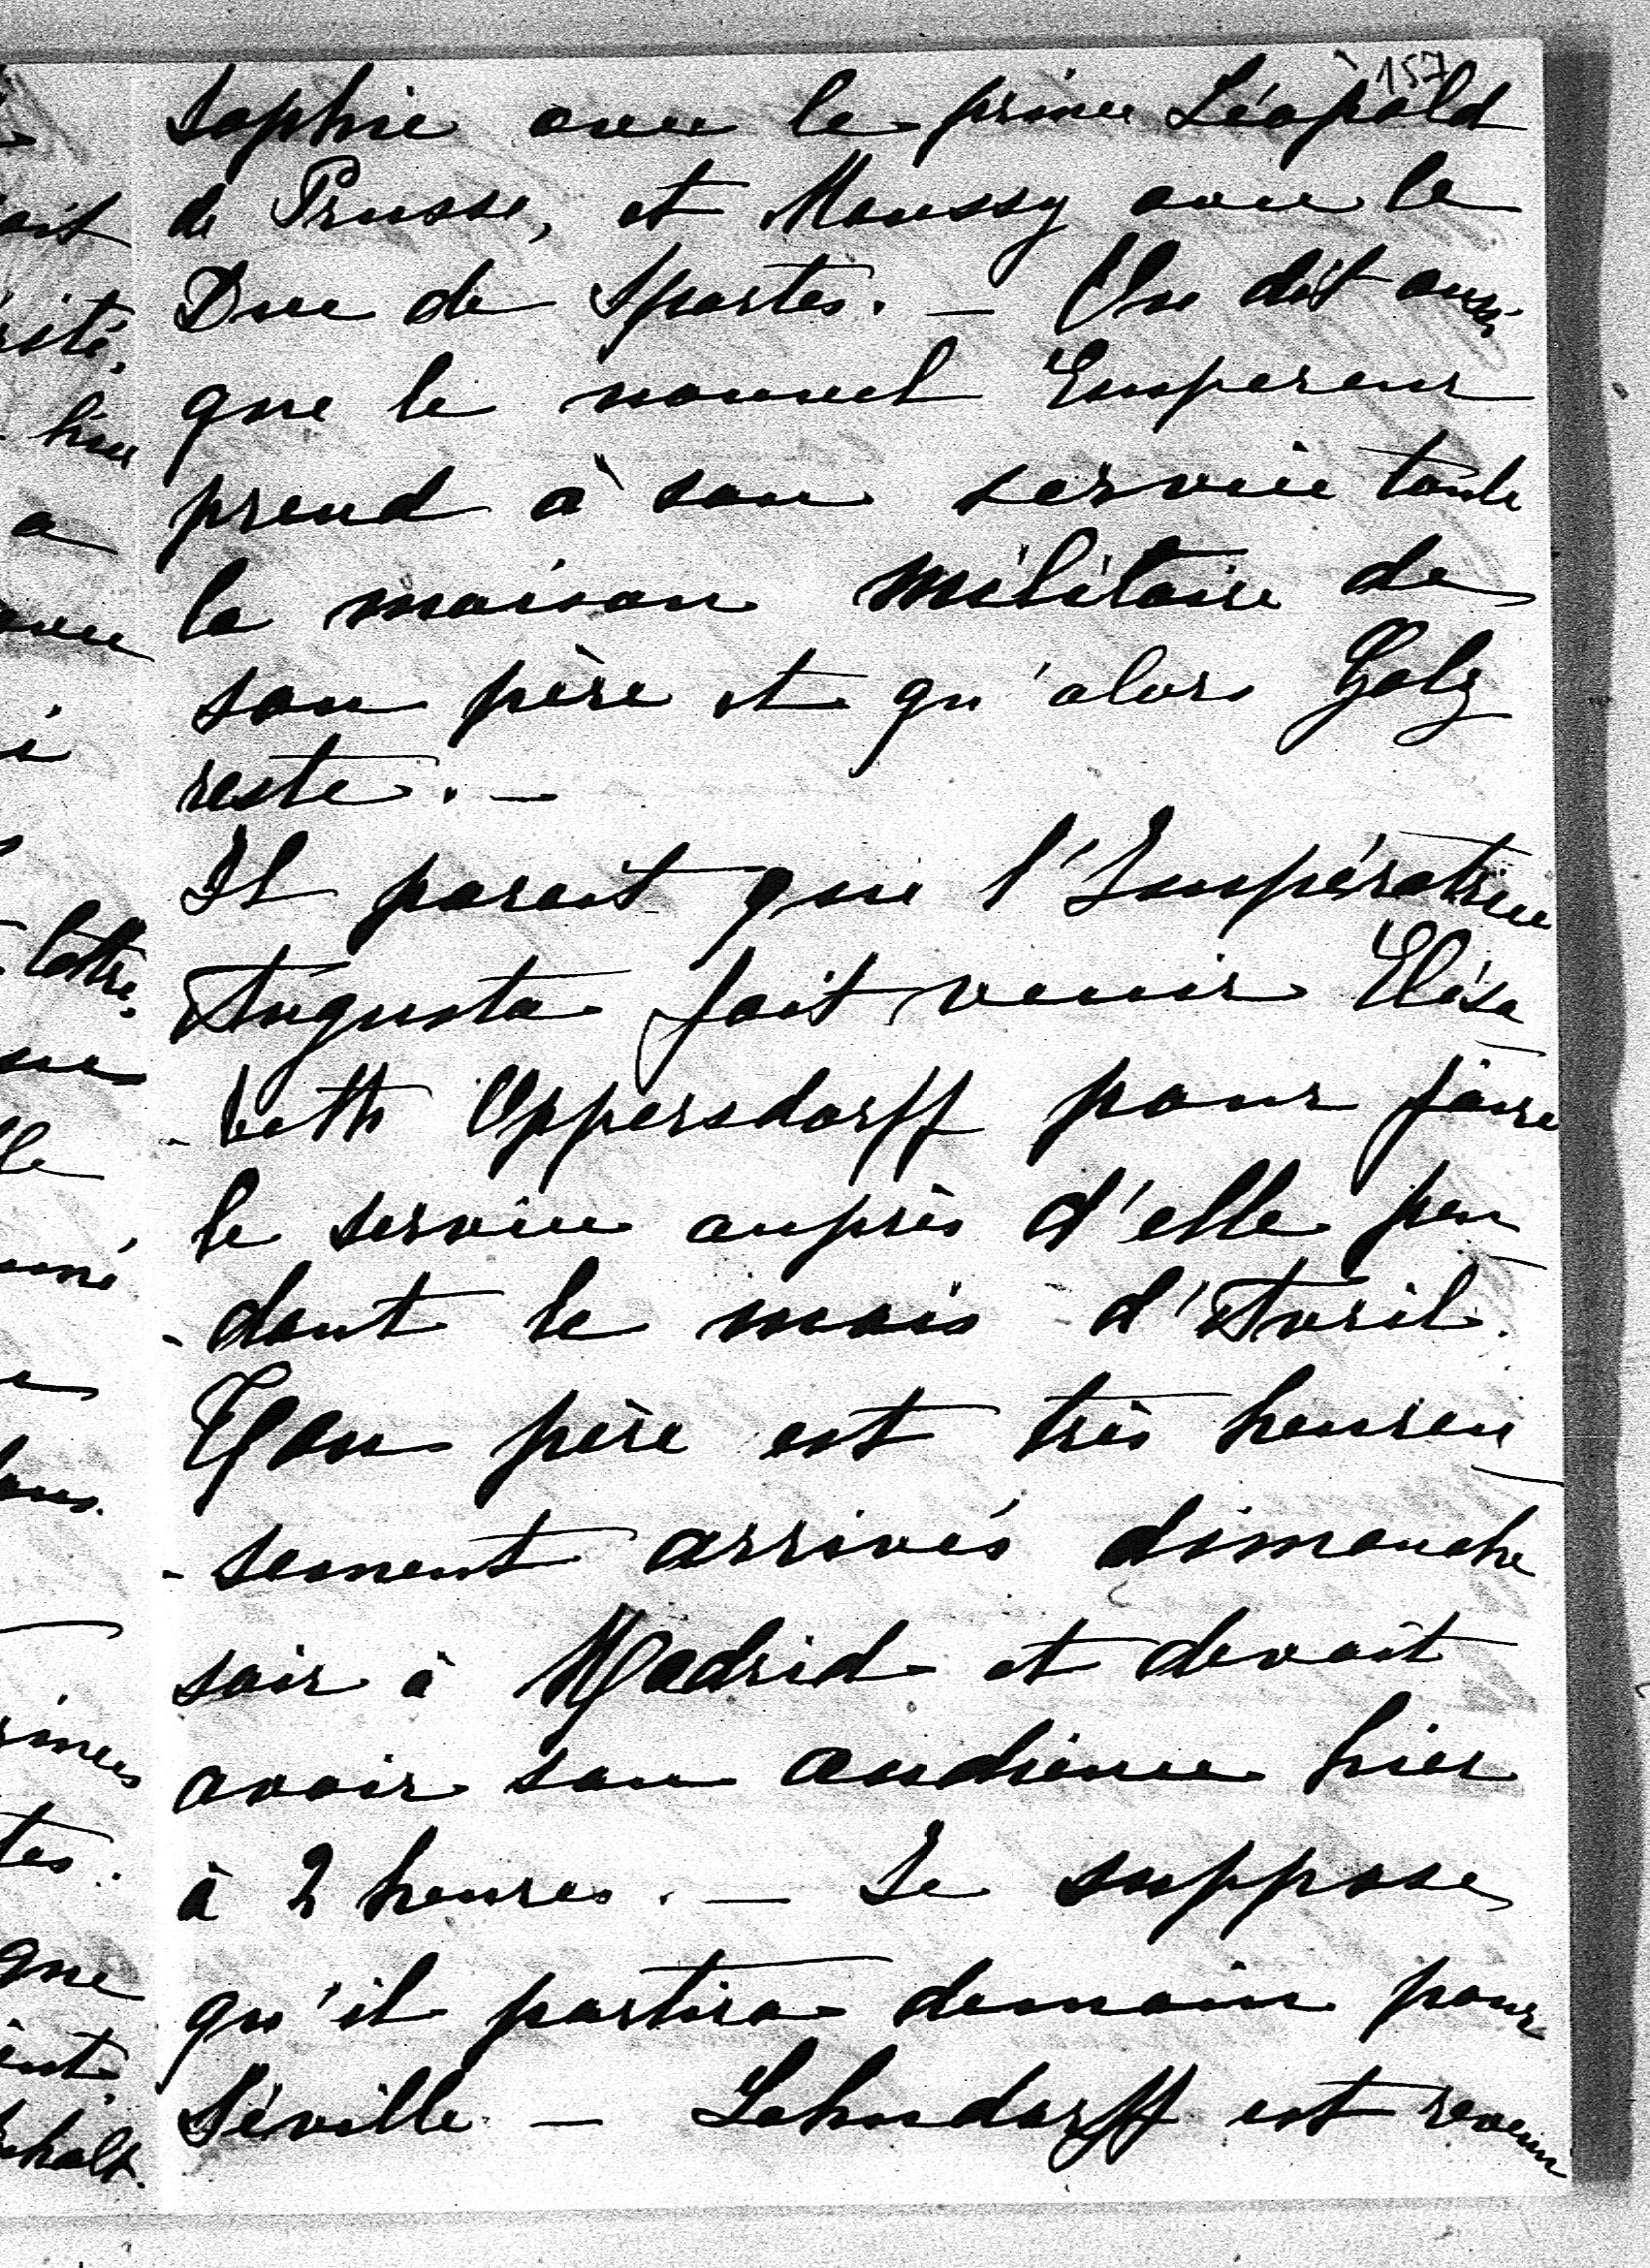 157
Sophie avec le prince Léopold
de Prusse, et Moussy avec le
Duc de Spartes. — On dit aussi
que le nouvel Empereur
prend à son service toute
la maison militaire de
son père et qu'alors Golz
reste. —
Il parait que l'Impératrice
Augusta fait venir Elisa
- beth Oppersdorff pour faire
le service auprès d'elle pen
- dant le mois d'Avril.
Mon père est très heureu
- sement arrivés dimanche
soir à Madrid et devait
avoir son audience hier
à 2 heures. — Je suppose
qu'il partira demain pour
Séville — Lehndorff est revenu